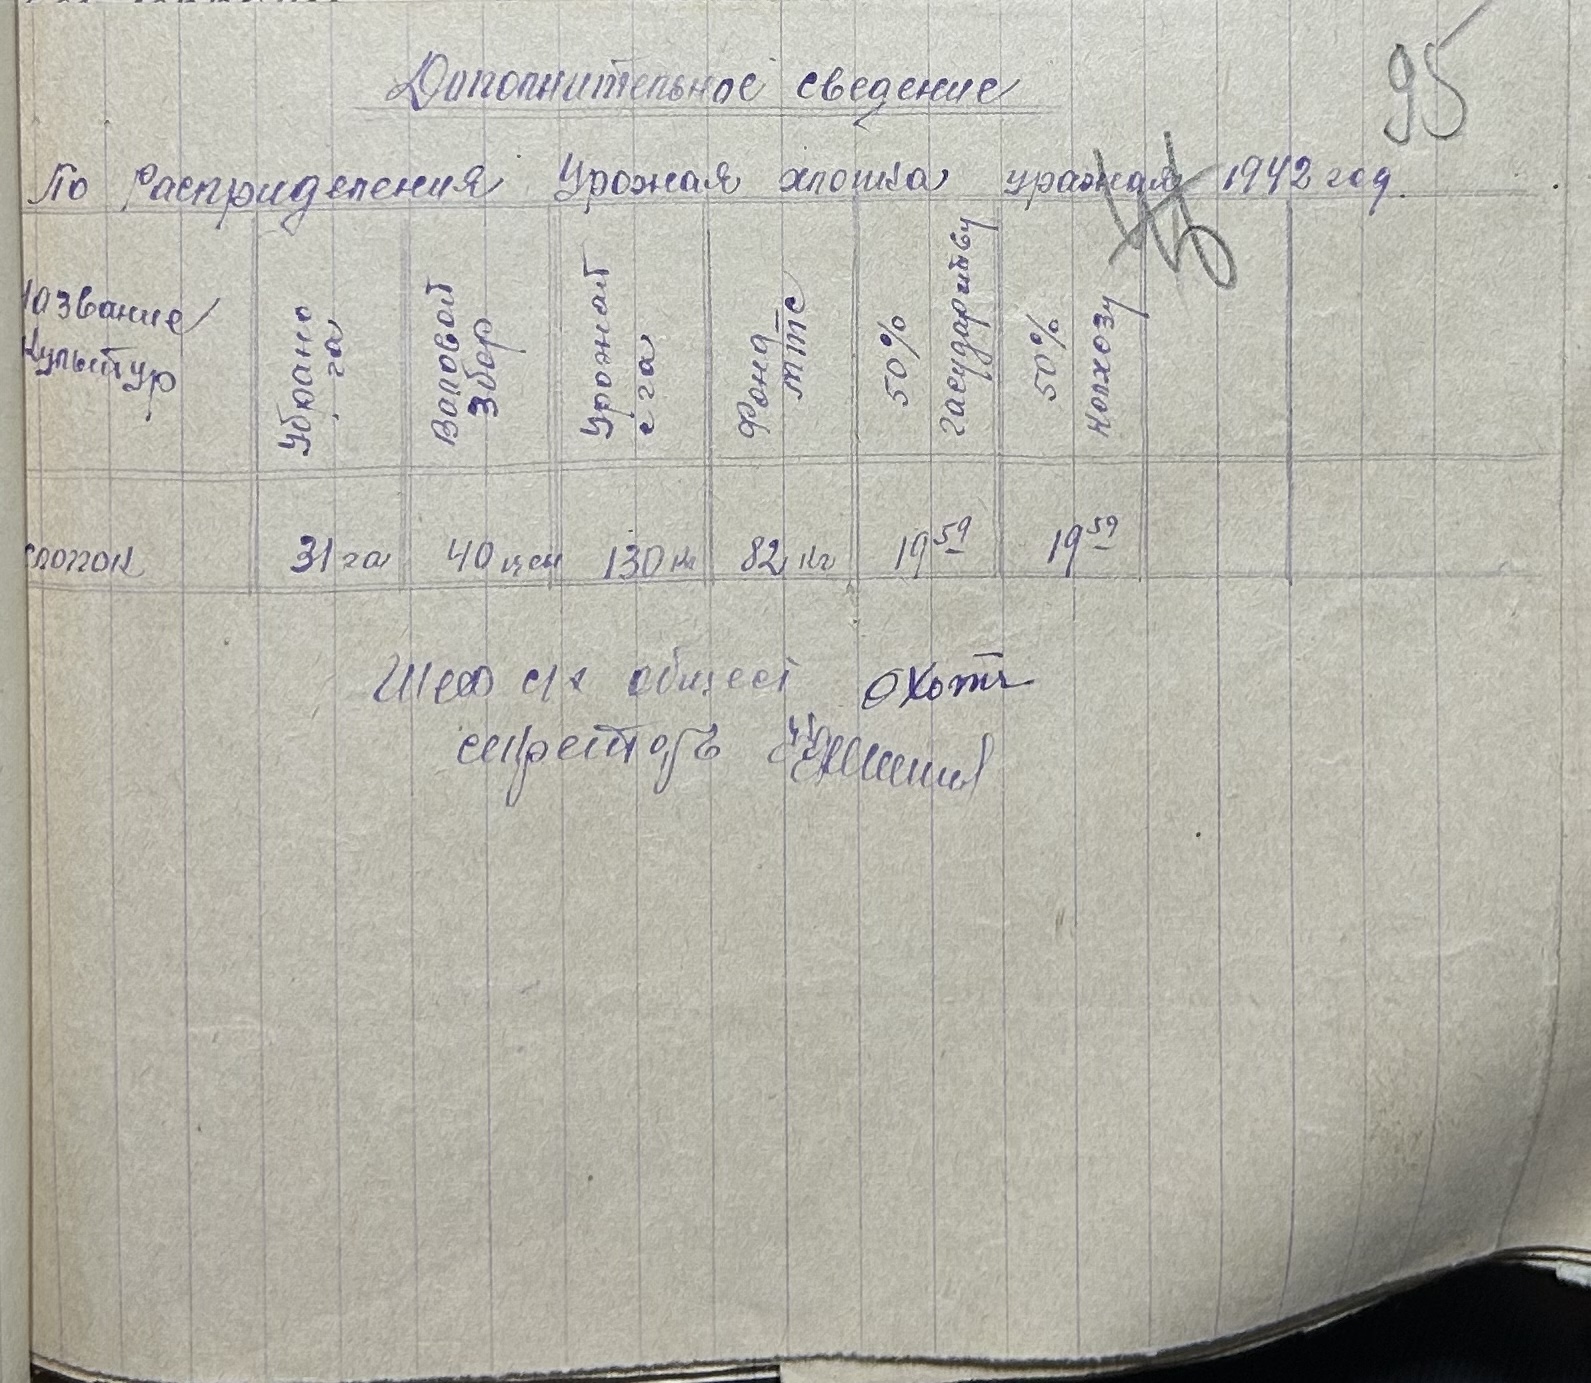 95
Дополнительное сведение
По Расприделения Урожая хлопка уражая 1942 год.
Название Культур
Убрано га
Валовой Збор
Урожай с га
Фонд МТС
50% гасударству
50% колхозу
хлопок 31 га 40 цен 130 кг 82 кг 19 59 19 59
Шеф с/х общест
секретарь